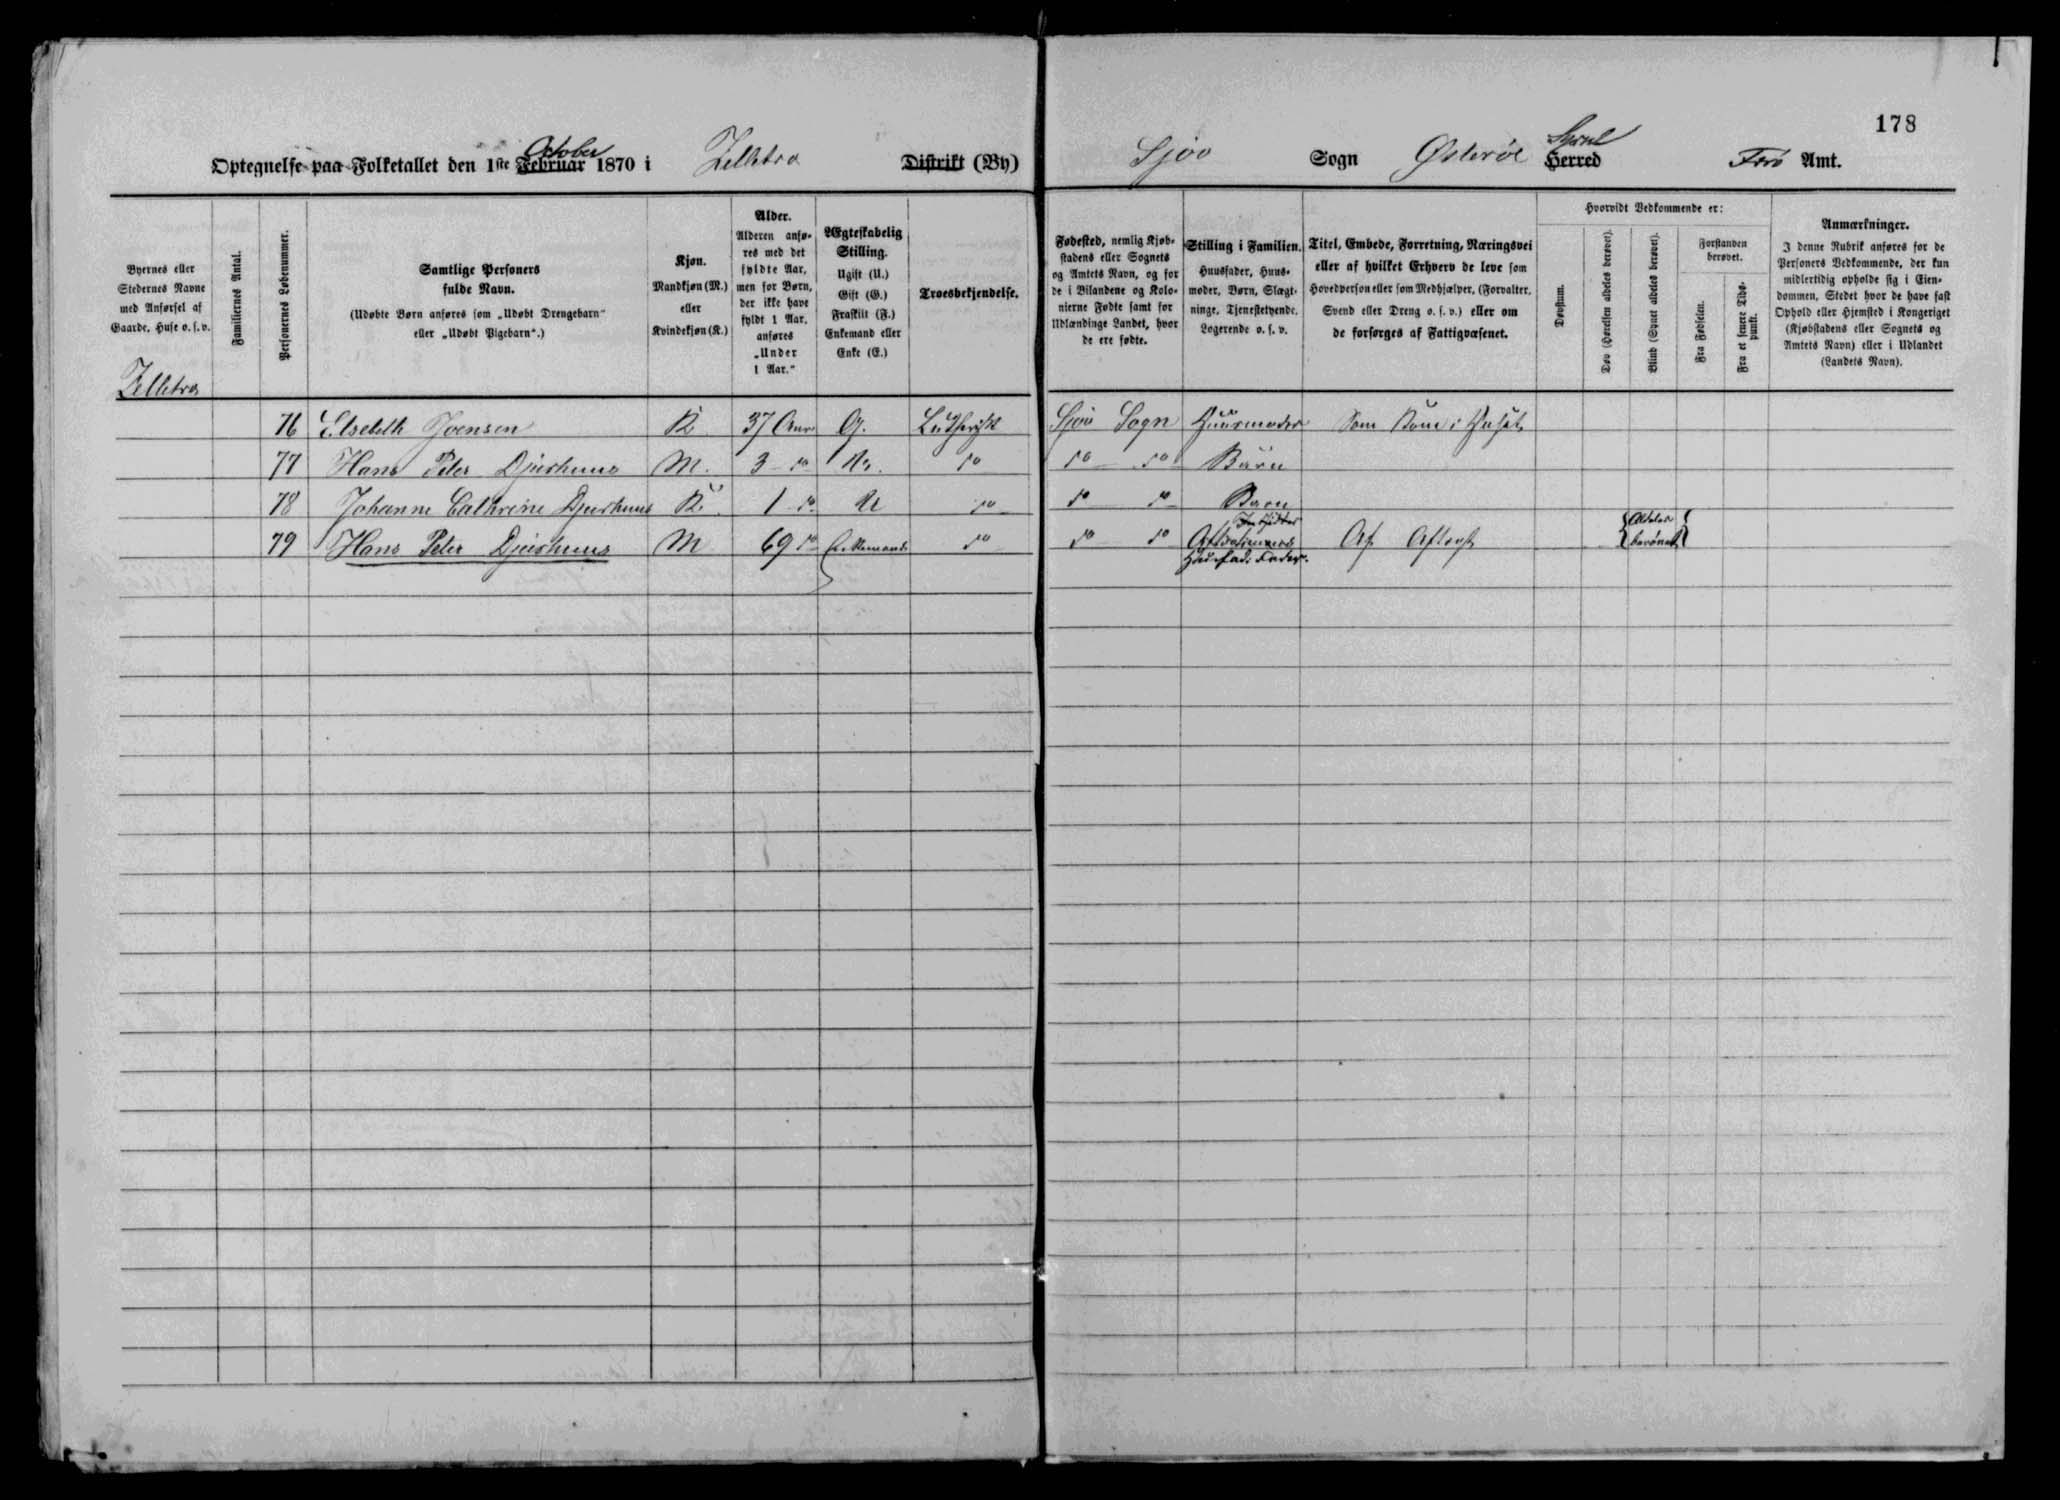 178
Optegnelse paa Folketallet den 1ste Februar October 1870 i Zelletræ Distrikt (By) Sjov Sogn Østerøe Herred Syssel Færø Amt.
Byernes eller Stedernes Navne med Anførsel af Gaarde, Huse o. s. v.
Familiernes Antal.
Personernes Løbenummer.
Samtlige Personers
fulde Navn.
(Udøbte Børn anføres som „Udøbt Drengebarn“
eller „Udøbt Pigebarn“.)
Kjøn.
Mandkjøn (M.)
eller
Kvindekjøn (K.)
Alder.
Alderen anfø-
res med det
fyldte Aar,
men for Børn,
der ikke have
fyldt 1 Aar,
anføres
„Under
1 Aar.“
Ægteskabelig
Stilling.
Ugift (U.)
Gift (G.)
Fraskilt (F.)
Enkemand eller
Enke (E.)
Troesbekjendelse.
Fødested, nemlig Kjøb-
stadens eller Sognets
og Amtets Navn, og for
de i Bilandene og Kolo-
nierne Fødte samt for
Udlændinge Landet, hvor
de ere fødte.
Stilling i Familien.
Huusfader, Huus-
moder, Børn, Slægt-
ninge, Tjenestetyende,
Logerende o. s. v.
Titel, Embede, Forretning, Næringsvei
eller af hvilket Erhverv de leve som
Hovedperson eller som Medhjælper, (Forvalter,
Svend eller Dreng o. s. v.) eller om
de forsørges af Fattigvæsenet.
Hvorvidt Vedkommende er:
Døvstum.
Døv (Hørelsen aldeles berøvet).
Blind (Synet aldeles berøvet).
Forstanden
berøvet.
Fra Fødselen.
Fra et senere Tids-
punkt.
Anmærkninger.
I denne Rubrik anføres for de
Personers Vedkommende, der kun
midlertidig opholde sig i Eien-
dommen, Stedet hvor de have fast
Ophold eller Hjemsted i Kongeriget
(Kjøbstadens eller Sognets og
Amtets Navn) eller i Udlandet
(Landets Navn).
Zelletræ
76 Elsebeth Joensen K 37 Aar G. Luthersk Sjov Sogn Huusmoder Som Kone i Huset
77 Hans Peter Djurhuus M. 3 do U. do do do Barn
78 Johanne Cathrine Djurhuus K. 1 do U do do do Barn
79 Hans Peter Djurhuus M 69 do Enkemand do do do Aftægtsmand Huusfad. Fader. Af Aftægt {Aldeles berøvet}